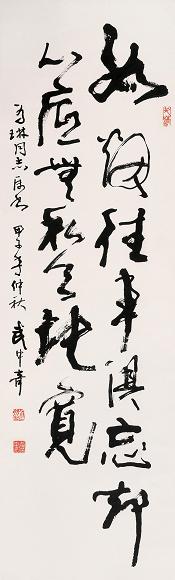 往事俱忘却
心底無私天地寬
琳同志 甲子年仲秋 武中奇